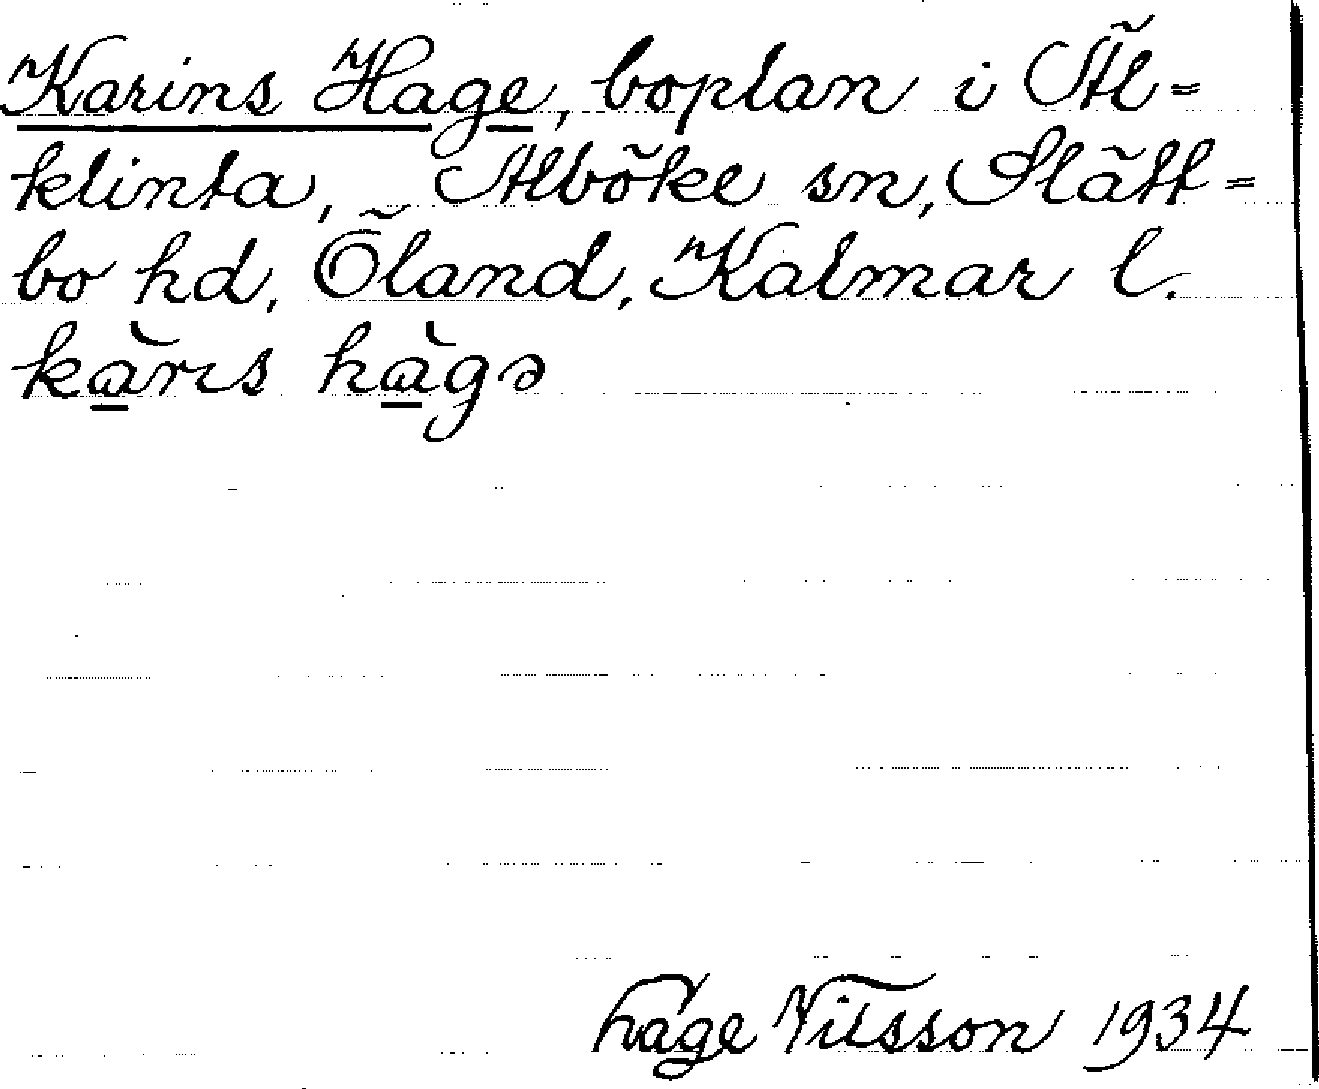 Karins Hage, boplan i Äl=
klinta, Alböke sn, Slätt=
bo hd, Öland, Kalmar l.
kàrıs hàgə
Låge Nilsson 1934